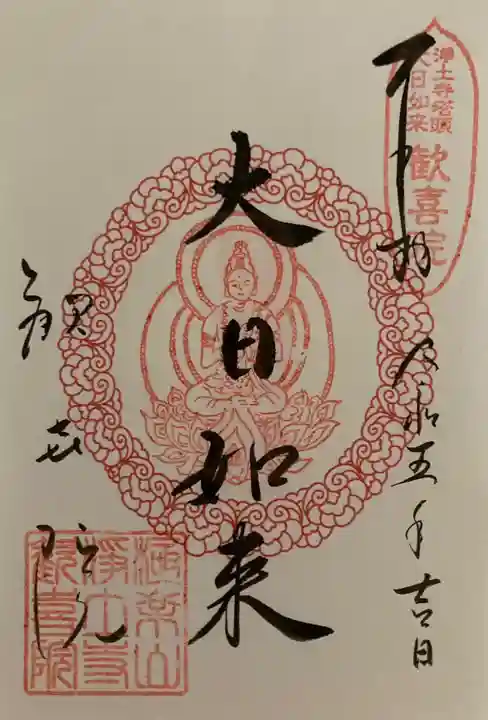 浄土寺塔頭
大日如来
歓喜院
奉拝
令和五年吉日
大日如来
歓喜院
極楽山
浄土寺
歓喜院